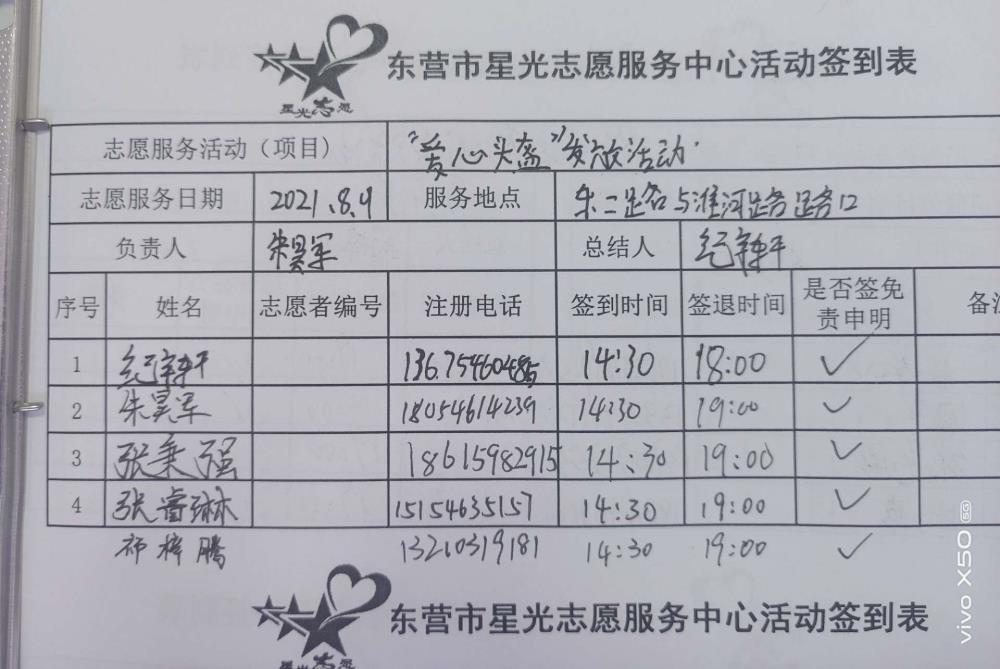 星光志愿
东营市星光志愿服务中心活动签到表
志愿服务活动（项目） “爱心头盔”发放活动
志愿服务日期 2021.8.9 服务地点 东二路名与淮河路路口
负责人 朱昊军 总结人 纪宇轩
序号 姓名 志愿者编号 注册电话 签到时间 签退时间 是否签免责申明 备注
1 纪宇轩 13675460485 14:30 18:00 ✓
2 朱昊军 18054614239 14:30 19:00 ✓
3 张秉强 18615982915 14:30 19:00 ✓
4 张睿琳 15154635157 14:30 19:00 ✓
祁梓腾 13210319181 14:30 19:00 ✓
东营市星光志愿服务中心活动签到表
星光志愿
vivo X50 5G